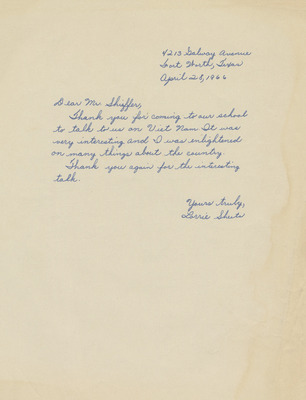 4213 Galway Avenue
Fort Worth, Texas
April 28, 1966
Dear Mr. Shuffer,
Thank you for coming to our school
to talk to us on Viet Nam. It was
very interesting and I was enlightened
on many things about the country.
Thank you again for the interesting
talk.
Yours truly,